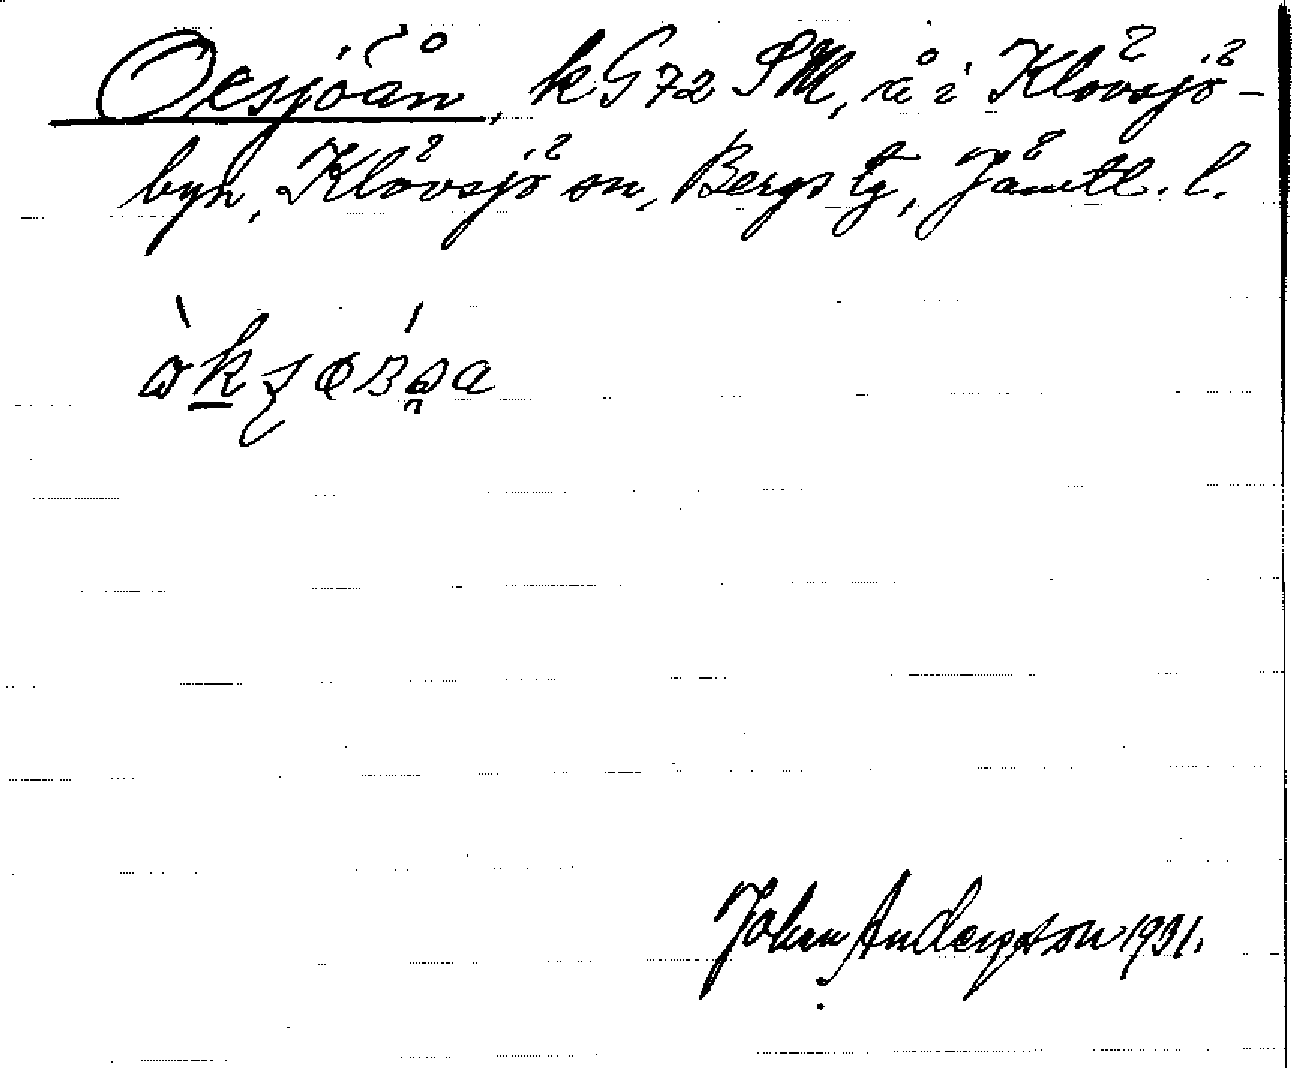 Ocsjöån, k G 72 SM, å i Klövsjö-
byn, Klövsjö sn, Bergs tg, Jämtl. l.
Johan Andersson 1931.